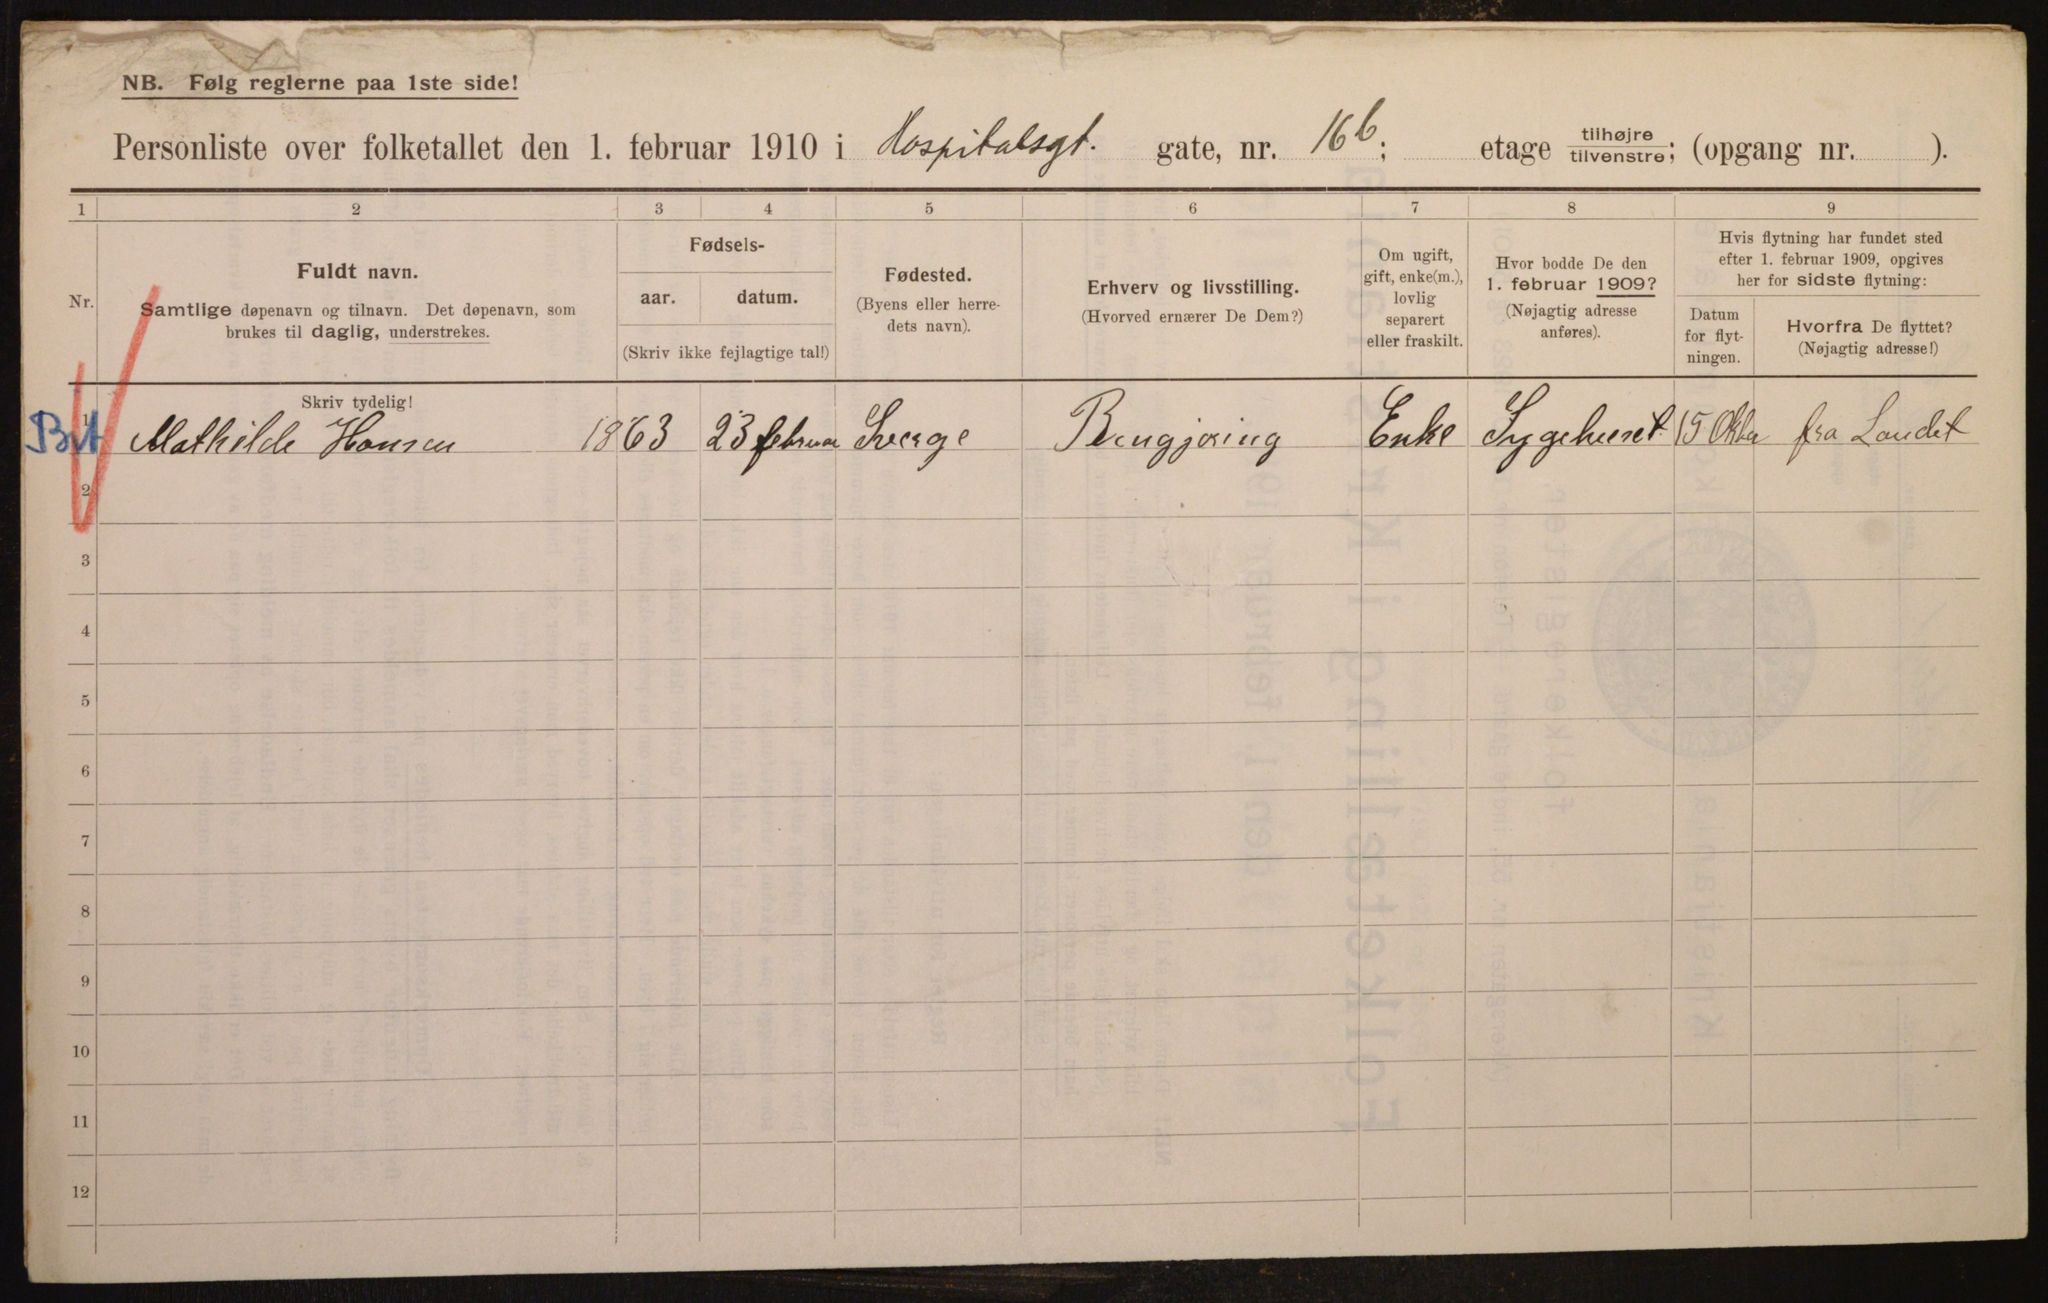 NB. Følg reglerne paa 1ste side!
Personliste over folketallet den 1. februar 1910 i Hospitalsgt. gate, nr. 16 b; etage tilhøjre/tilvenstre; (opgang nr. ).
1 2 3 4 5 6 7 8 9
Nr.
Fuldt navn.
Samtlige døpenavn og tilnavn. Det døpenavn, som
brukes til daglig, understrekes.
Fødsels-
aar. datum.
(Skriv ikke fejlagtige tal!)
Fødested.
(Byens eller herre-
dets navn).
Erhverv og livsstilling.
(Hvorved ernærer De Dem?)
Om ugift,
gift, enke(m.),
lovlig
separert
eller fraskilt.
Hvor bodde De den
1. februar 1909?
(Nøjagtig adresse
anføres).
Hvis flytning har fundet sted
efter 1. februar 1909, opgives
her for sidste flytning:
Datum
for flyt-
ningen.
Hvorfra De flyttet?
(Nøjagtig adresse!)
Skriv tydelig!
1 Mathilde Hansen 1863 23 februar Sverge Rengjøring Enke Sygehuset 15 Oktbr fra Landet
2
3
4
5
6
7
8
9
10
11
12